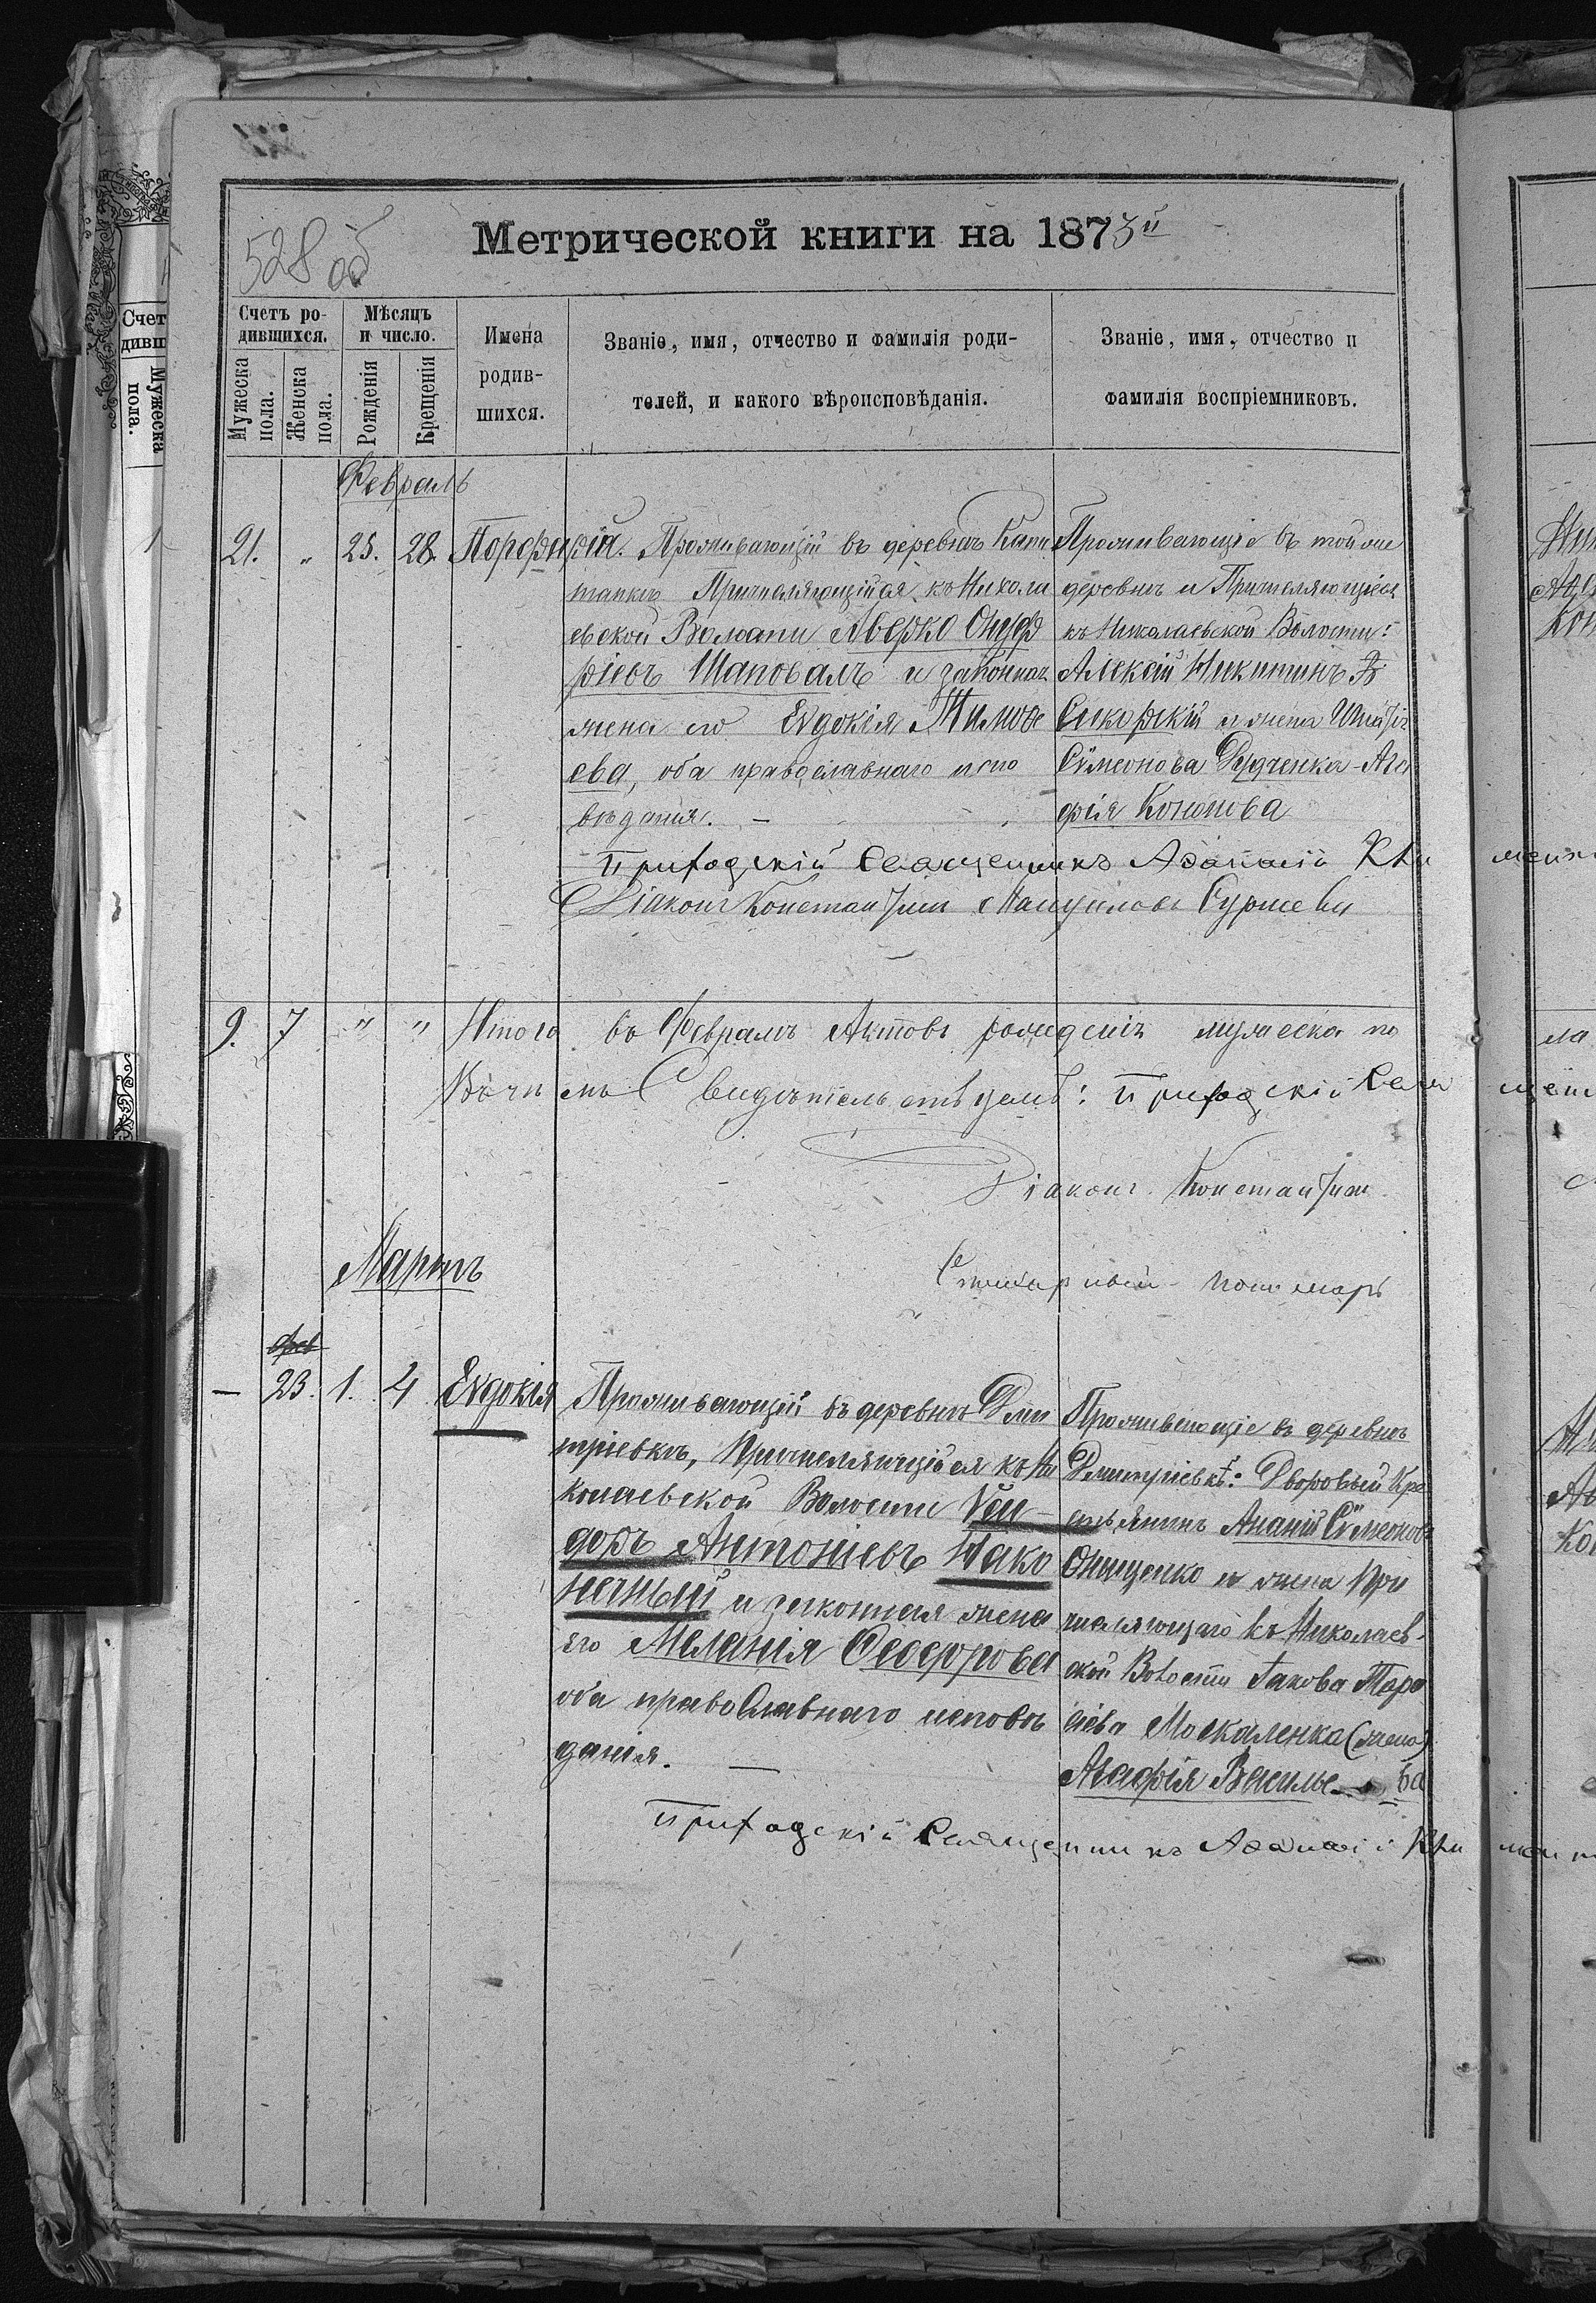 528 об
Метрической книги на 1873й
Счетъ родившихся.
Мѣсяцъ и число.
Имена родившихся.
Званіе, имя, отчество и фамилія родителей, и какого вѣроисповѣданія.
Званіе, имя, отчество и фамилія воспріемниковъ.
Мужеска пола.
Женска пола.
Рожденія
Крещенія
Февраль
21. " 25. 28. Порфирій.
Проживающій въ деревнѣ Капи
танкѣ Причисляющійся къ Никола
евской Волости Аверко Онуф
ріевъ Шаповалъ и законная
жена его Евдокія Тимофе
ева, оба православнаго испо
вѣданія. —
Проживающіе въ той же
деревнѣ и Причисляющіеся
къ Николаевской Волости:
Алексій Никитинъ
Сикорскій и жена Игнатія
Симеонова Дудченка Ага
фія Кононова
Приходскій Священникъ Аѳанасій
Діаконъ Константинъ
9. 7 " " Итого въ Февралѣ Актовъ рожденія мужеска по
Въ чемъ Свидѣтельствуемъ: Приходскій Свя
Діаконъ Константин
Мартъ
Стихарный Пономарь
фев
— 23. 1. 4 Евдокія
Проживающій въ деревнѣ Дми
тріевкѣ, Причисляющійся къ Ни
колаевской Волости Иси-
доръ Антоніевъ Нако
нечный и законная жена
его Меланія Ѳеодорова
оба православнаго исповѣ
данія. —
Проживающіе въ деревнѣ
Дмитріевкѣ: Дворовый Кре
стьянинъ Ананій Симеоновъ
Онищенко и жена При
числяющаго къ Николаев-
ской Волости Іакова Тара
сіева Москаленка (жена)
Агафія Василье ва
Приходскій Священникъ Аѳанасій